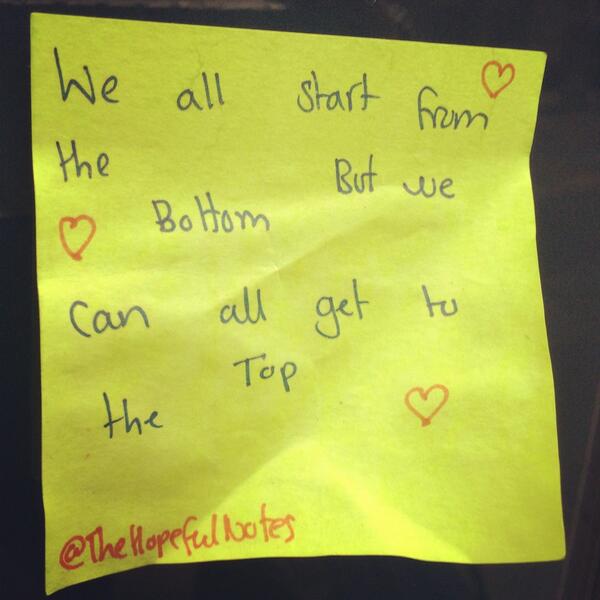 We all start from
the Bottom But we
Can all get to
the Top
@TheHopefulNotes